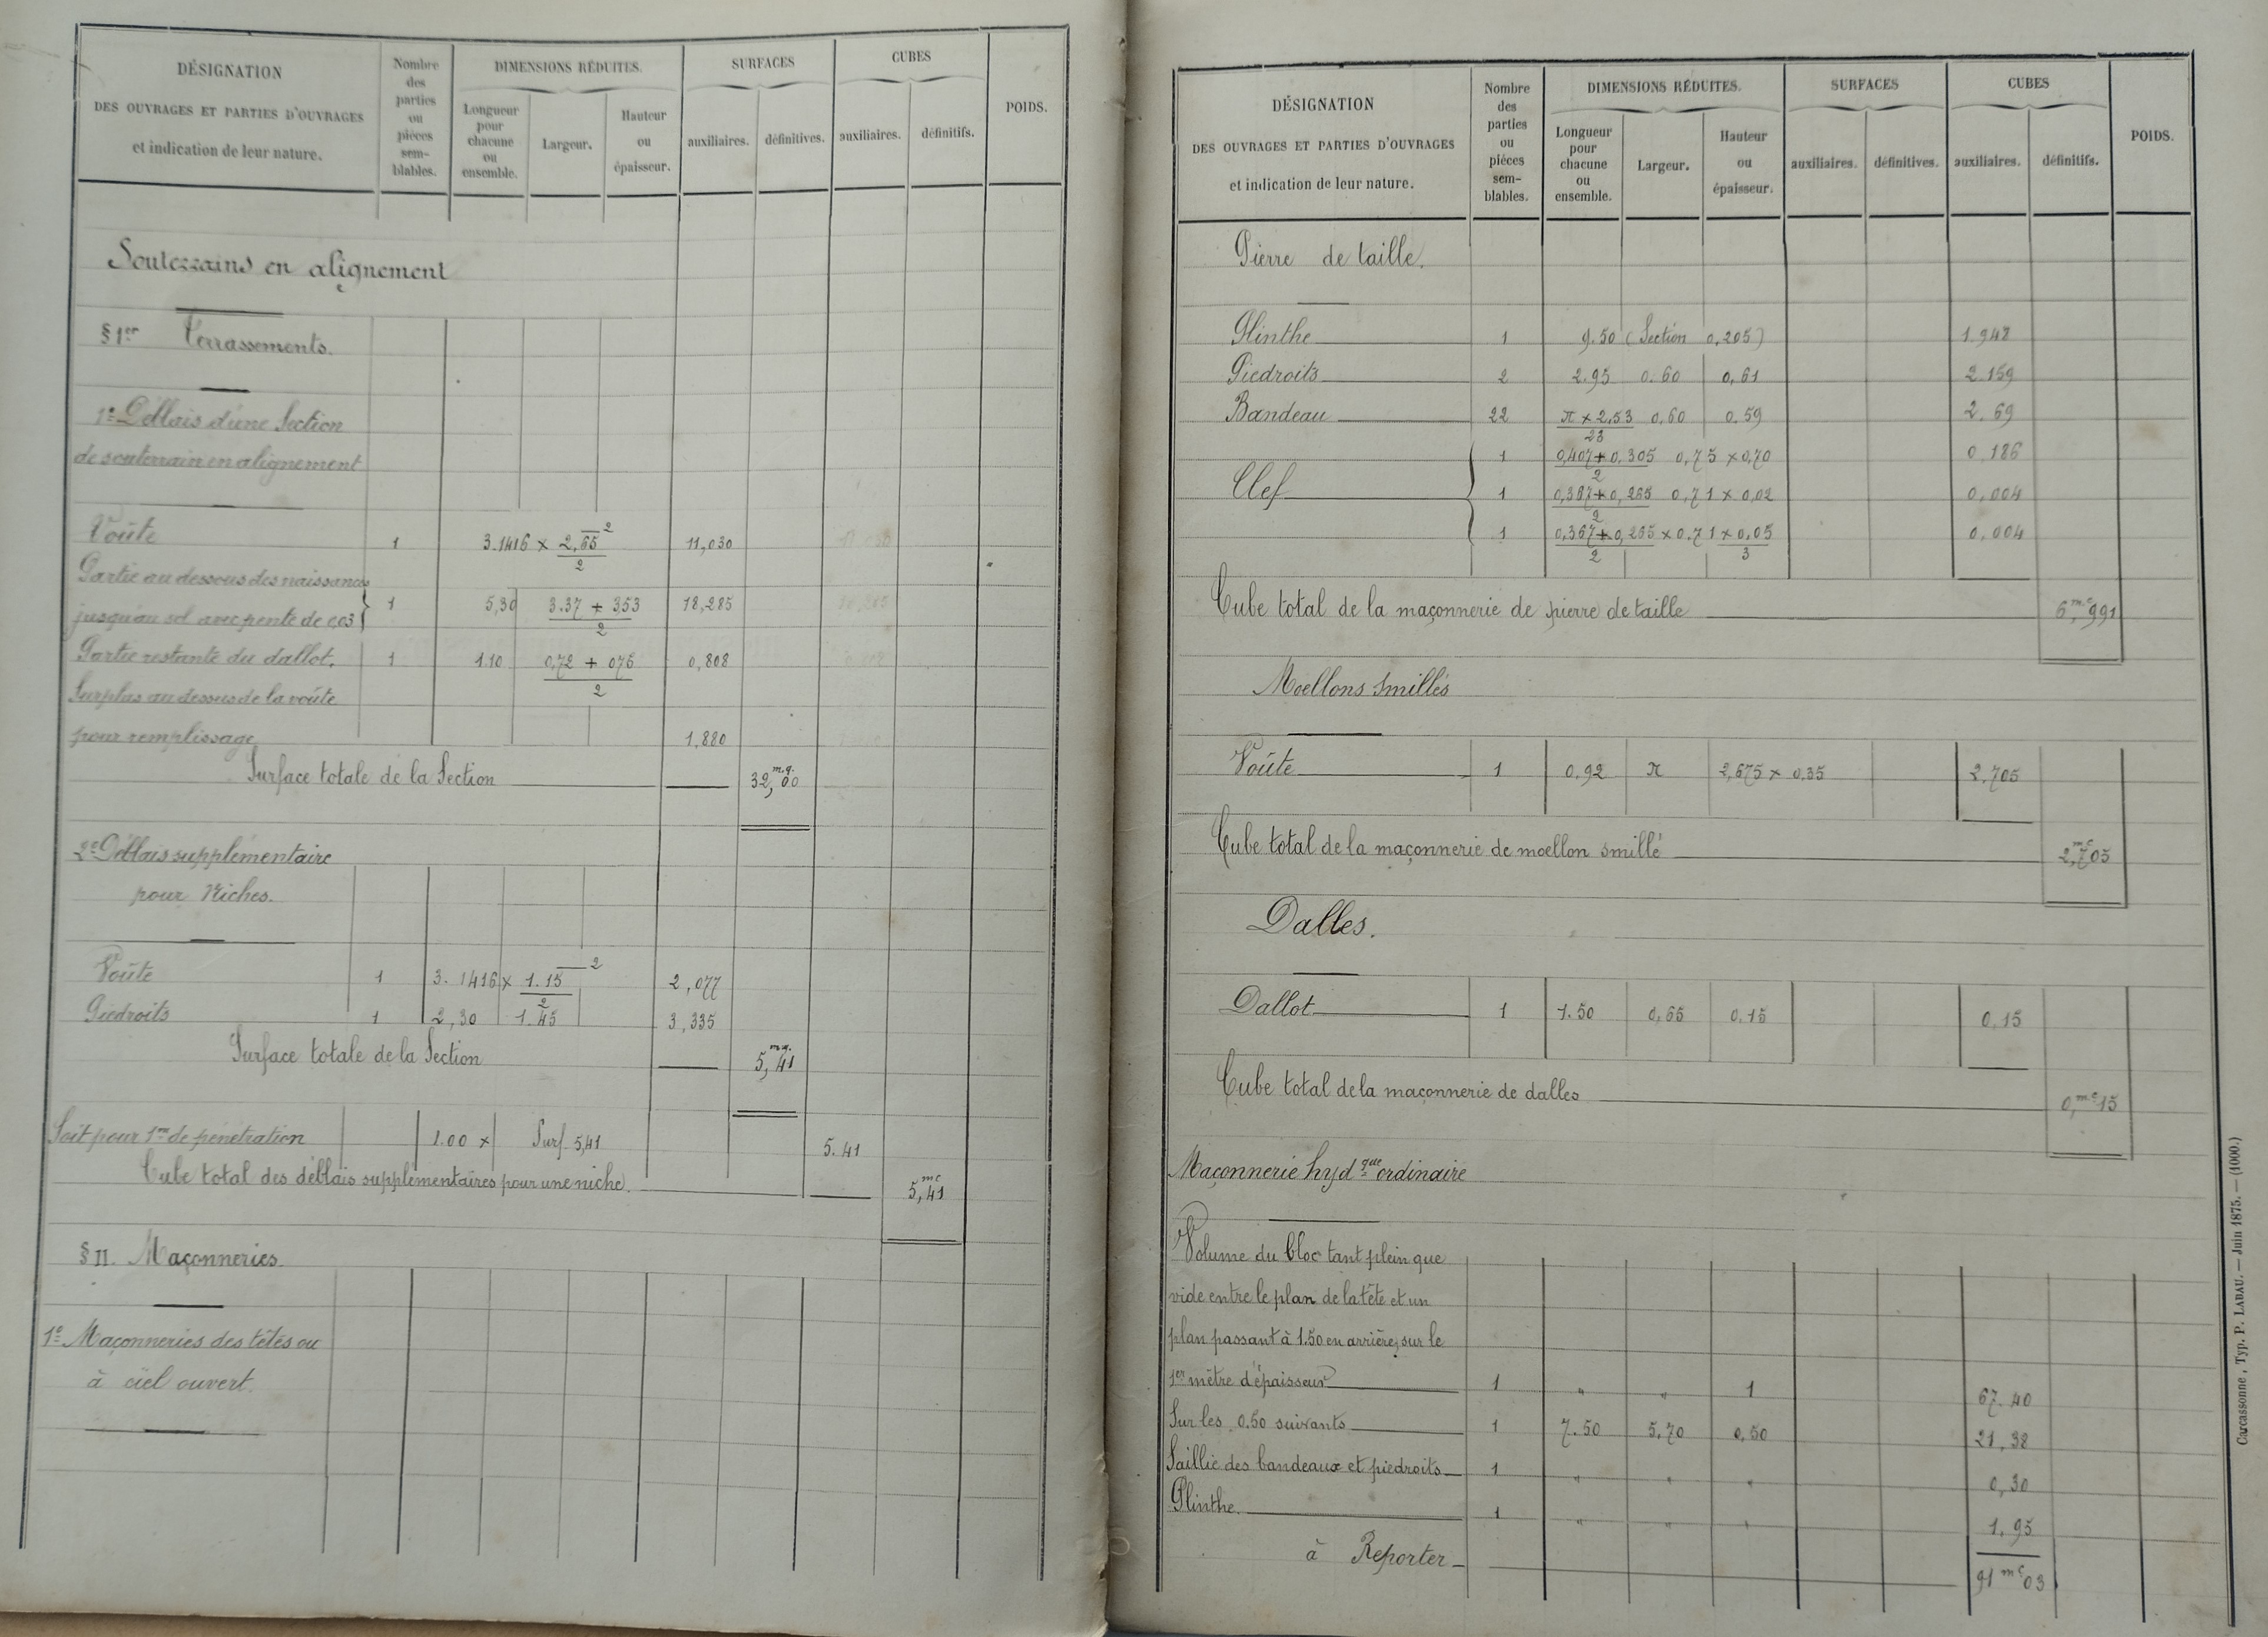 DÉSIGNATION
DES OUVRAGES ET PARTIES D'OUVRAGES
et indication de leur nature.
Nombre
des
parties
ou
pièces
sem-
blables.
DIMENSIONS RÉDUITES.
Longueur
pour
chacune
ou
ensemble.
Largeur.
Hauteur
ou
épaisseur.
SURFACES
auxiliaires.
définitives.
CUBES
auxiliaires.
définitifs.
POIDS.
Souterrains en alignement
§ 1er Terrassements.
1º Déblais d'une Section
de souterrain en alignement
Voûte 1 3.1416 × 2,65² / 2 11,030
Partie au dessous des naissances
jusqu'au sol avec pente de 0,03 } 1 5,30 3.37 + 3.53 / 2 18,285
Partie restante du dallot. 1 1.10 0,72 + 0,75 / 2 0,808
Surplus au dessus de la voûte
pour remplissage 1,880
Surface totale de la Section 32,m.q.00
2º Déblais supplémentaire
pour Niches.
Voûte 1 3.1416 × 1.15² / 2 2,077
Piedroits 1 2,30 1.45 3,335
Surface totale de la Section 5,m.q.41
Soit pour 1m de pénétration 1.00 × Surf. 5,41 5.41
Cube total des déblais supplémentaires pour une niche. 5,mc41
§ II. Maçonneries.
1º Maçonneries des têtes ou
à ciel ouvert.
DÉSIGNATION
DES OUVRAGES ET PARTIES D'OUVRAGES
et indication de leur nature.
Nombre
des
parties
ou
pièces
sem-
blables.
DIMENSIONS RÉDUITES.
Longueur
pour
chacune
ou
ensemble.
Largeur.
Hauteur
ou
épaisseur.
SURFACES
auxiliaires.
définitives.
CUBES
auxiliaires.
définitifs.
POIDS.
Pierre de taille.
Plinthe 1 9.50 (Section 0,205) 1.948
Piedroits 2 2.95 0.60 0,61 2.159
Bandeau 22 π × 2,53 / 23 0,60 0.59 2.69
1 0,407 + 0,305 / 2 0,75 × 0,70 0,186
Clef 1 0,367 + 0,265 / 2 0,71 × 0,02 0,004
1 0,367 + 0,265 / 2 × 0.71 × 0,05 / 3 0,004
Cube total de la maçonnerie de pierre de taille 6,m.c991
Moellons Smillés
Voûte 1 0.92 π 2,675 × 0.35 2.705
Cube total de la maçonnerie de moellon smillé 2,mc705
Dalles.
Dallot 1 1.50 0,65 0.15 0,15
Cube total de la maçonnerie de dalles 0,m.c15
Maçonnerie hydque ordinaire
Volume du bloc tant plein que
vide entre le plan de la tête et un
plan passant à 1.50 en arrière, sur le
1er mètre d'épaisseur 1 " " 1 67.40
Sur les 0.50 suivants 1 7.50 5.70 0,50 21,38
Saillie des bandeaux et piedroits 1 " " " 0,30
Plinthe. 1 " " " 1,95
à Reporter 91mc03
Carcassonne, Typ. P. LABAU. — Juin 1875. — (1000.)